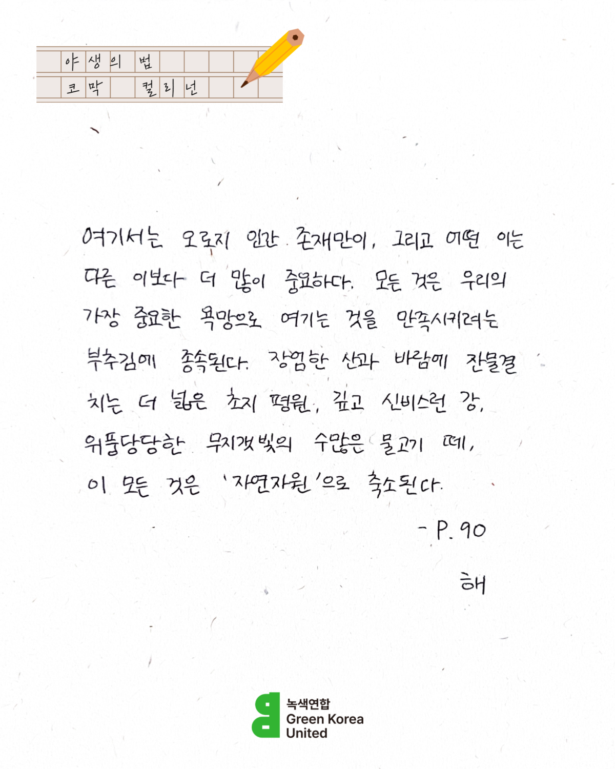 야생의 법
코막 컬리넌
여기서는 오로지 인간 존재만이, 그리고 어떤 이는
다른 이보다 더 많이 중요하다. 모든 것은 우리의
가장 중요한 욕망으로 여기는 것을 만족시키려는
부추김에 종속된다. 장엄한 산과 바람에 잔물결
치는 더 넓은 초지 평원, 깊고 신비스런 강,
위풍당당한 무지갯빛의 수많은 물고기 떼,
이 모든 것은 '자연자원'으로 축소된다.
- P. 90
해
녹색연합
Green Korea
United